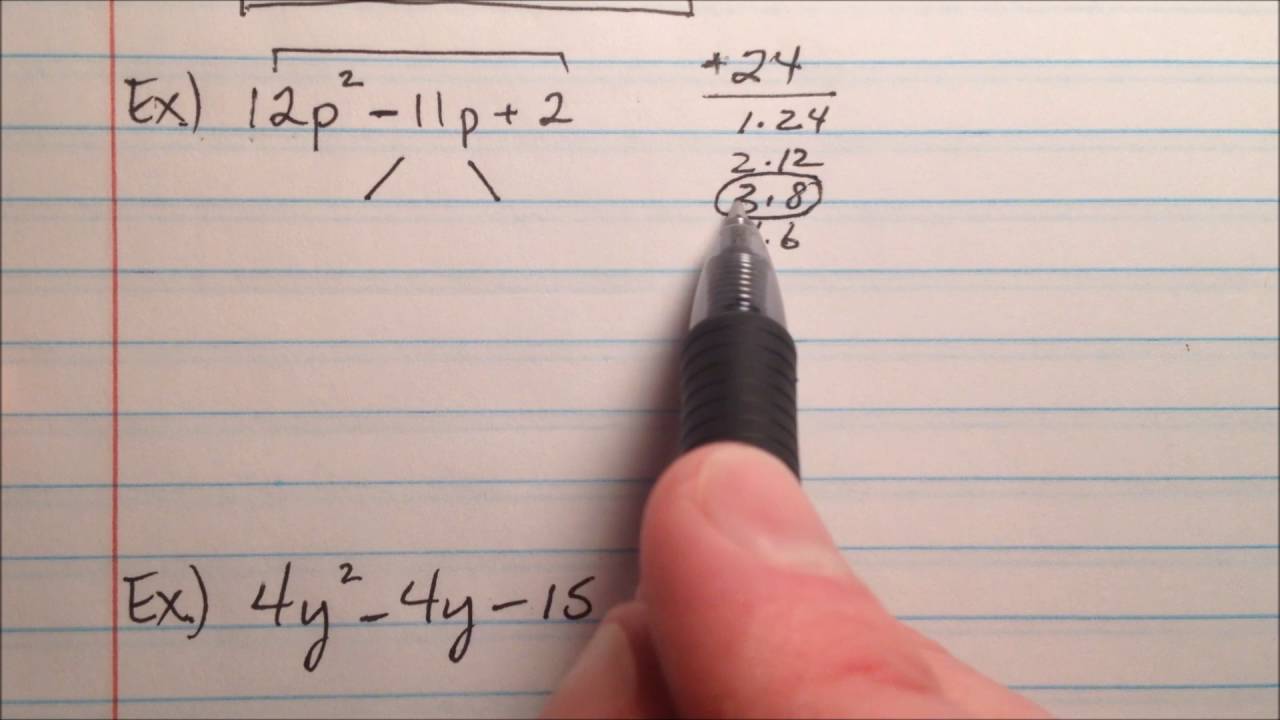 Ex) 12p² - 11p + 2
+24
1.24
2.12
3.8
.6
Ex) 4y² - 4y - 15